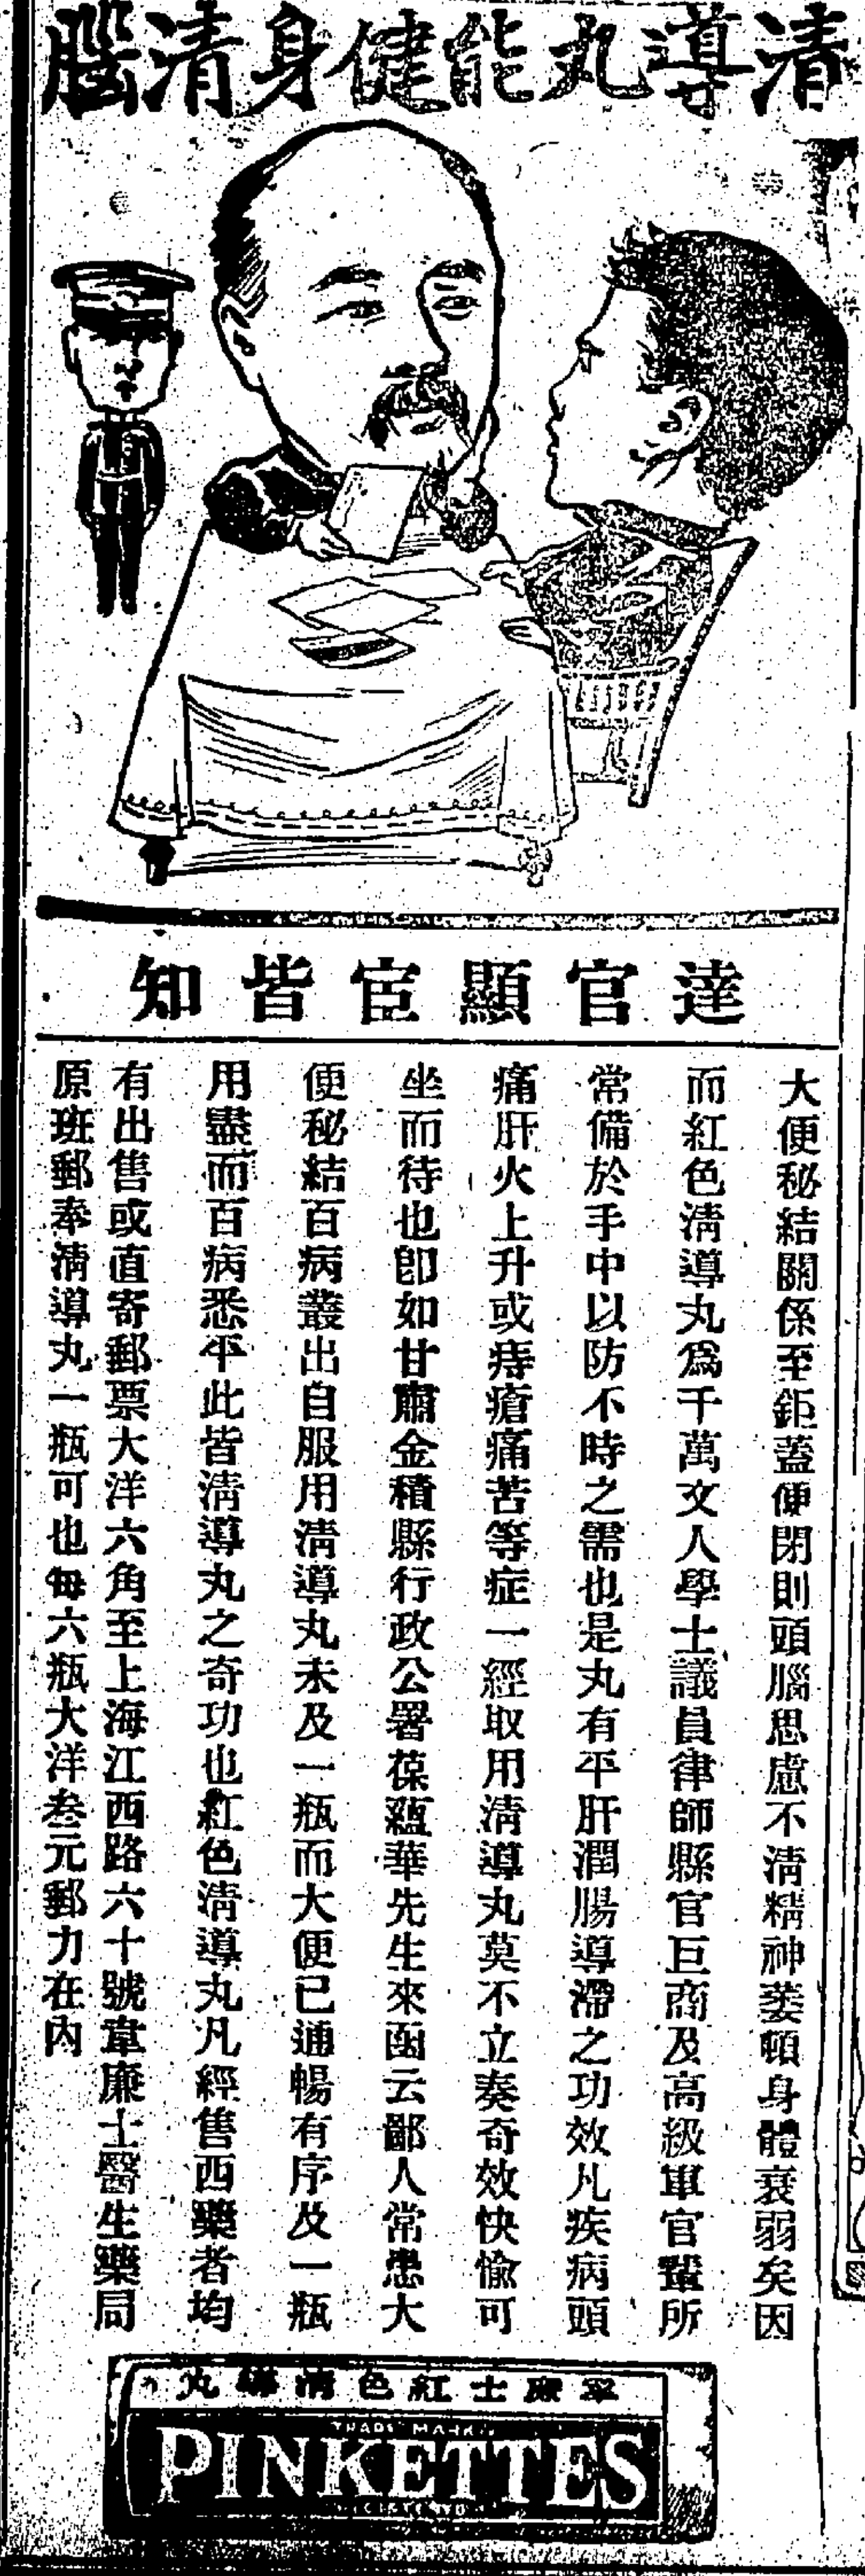 清導丸能健身清腦
達官顯宦皆知
大便秘結關係至鉅蓋便閉則頭腦思慮不清精神萎頓身體衰弱矣因
而紅色清導丸爲千萬文人學士議員律師縣官巨商及高級軍官輩所
常備於手中以防不時之需也是丸有平肝潤腸導滯之功效凡疾病頭
痛肝火上升或痔瘡痛苦等症一經取用清導丸莫不立奏奇效快愉可
坐而待也卽如甘肅金積縣行政公署葆蘊華先生來函云鄙人常患大
便秘結百病叢出自服用清導丸未及一瓶而大便已通暢有序及一瓶
用盡而百病悉平此皆清導丸之奇功也紅色清導丸凡經售西藥者均
有出售或直寄郵票大洋六角至上海江西路六十號韋廉士醫生藥局
原班郵奉清導丸一瓶可也每六瓶大洋叁元郵力在內
韋廉士紅色清導丸
TRADE MARK
PINKETTES